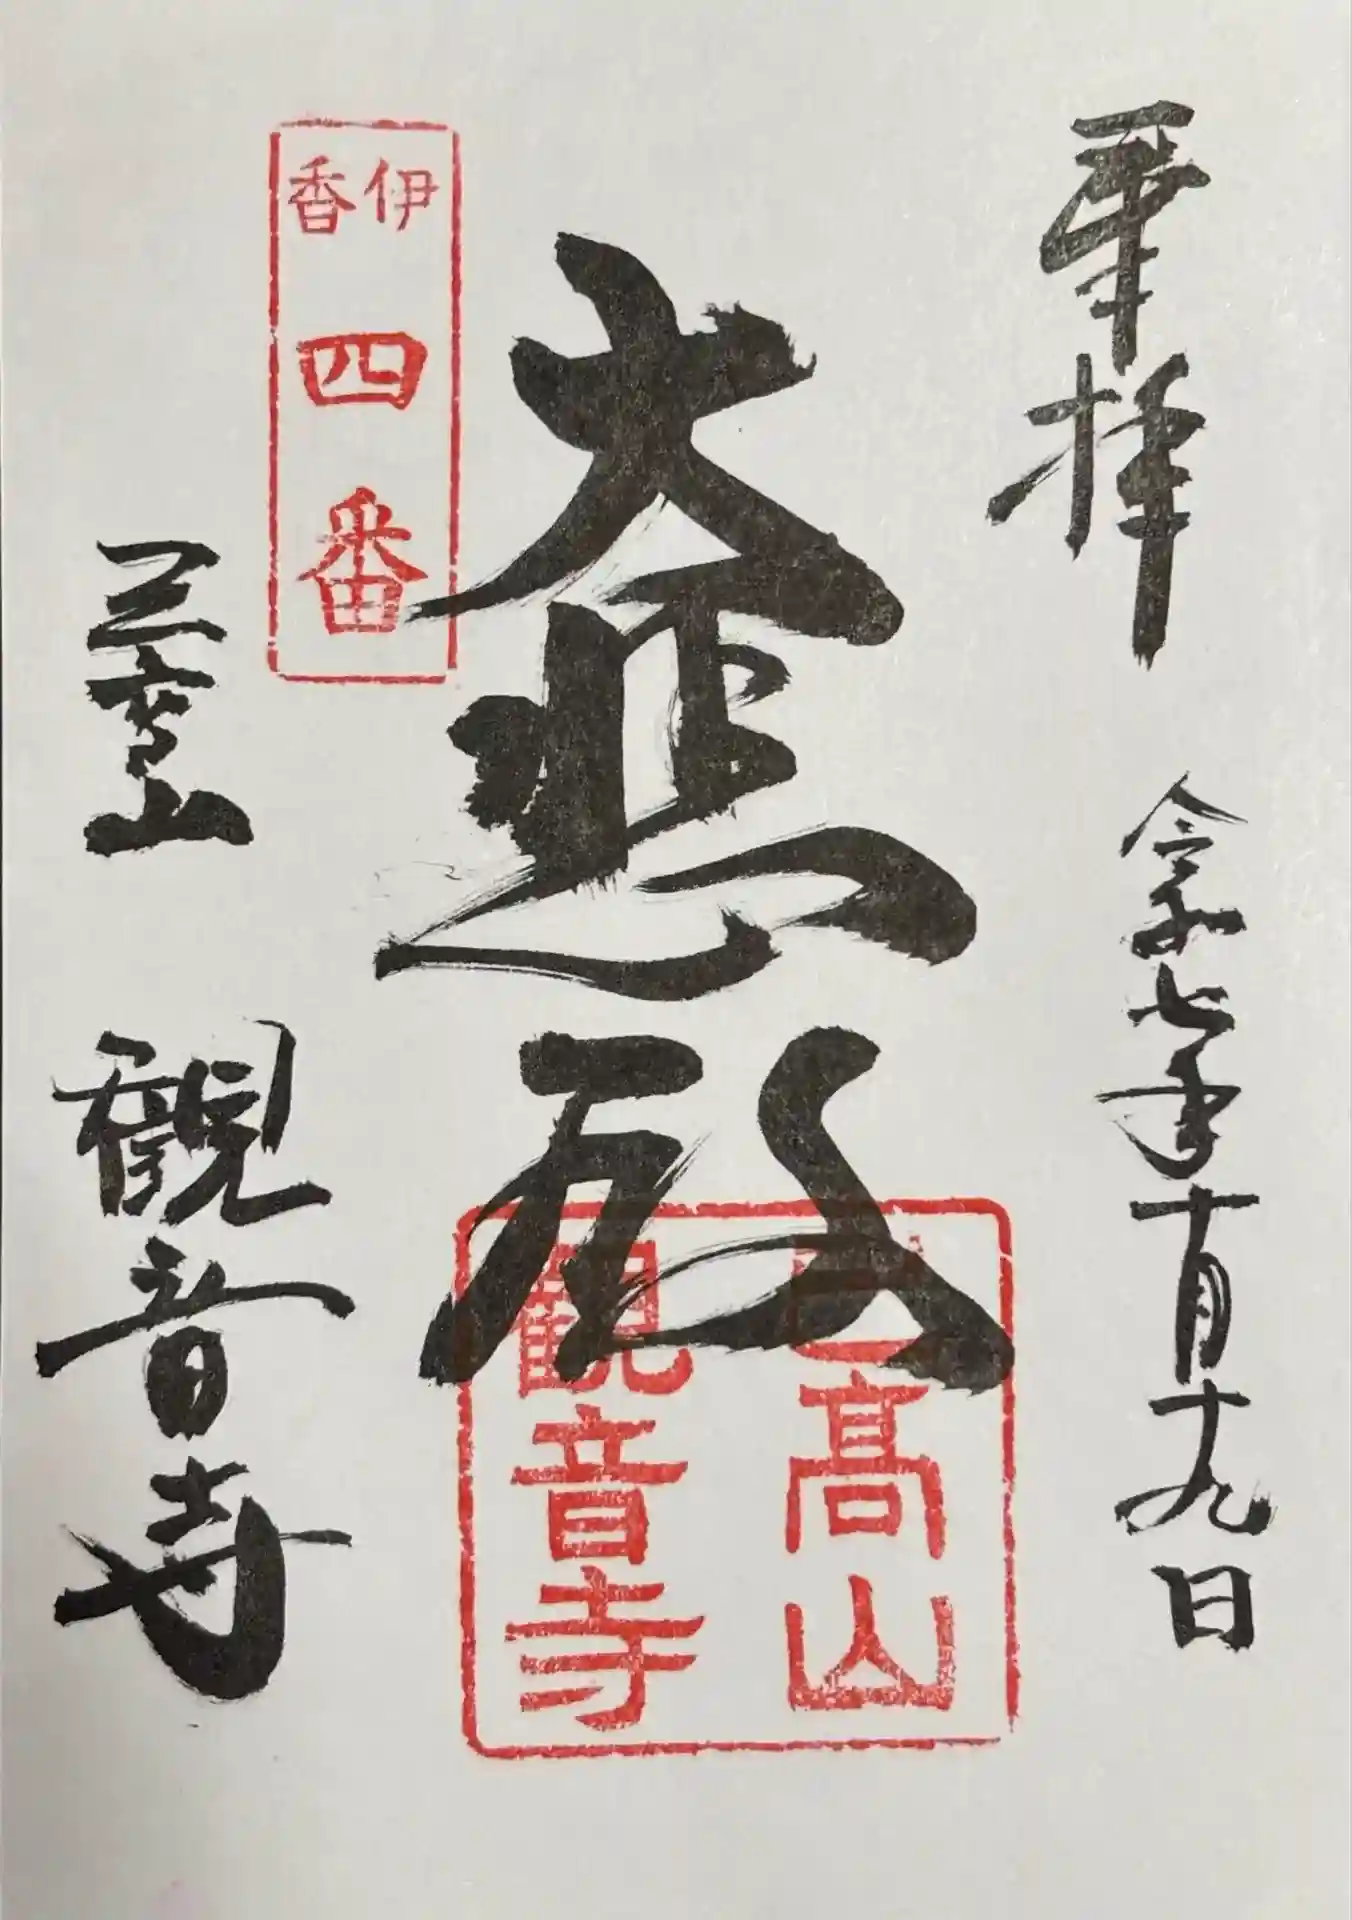 奉拝 令和七年十月十九日
伊香
四番
大悲殿
己高山
觀音寺
己高山 觀音寺